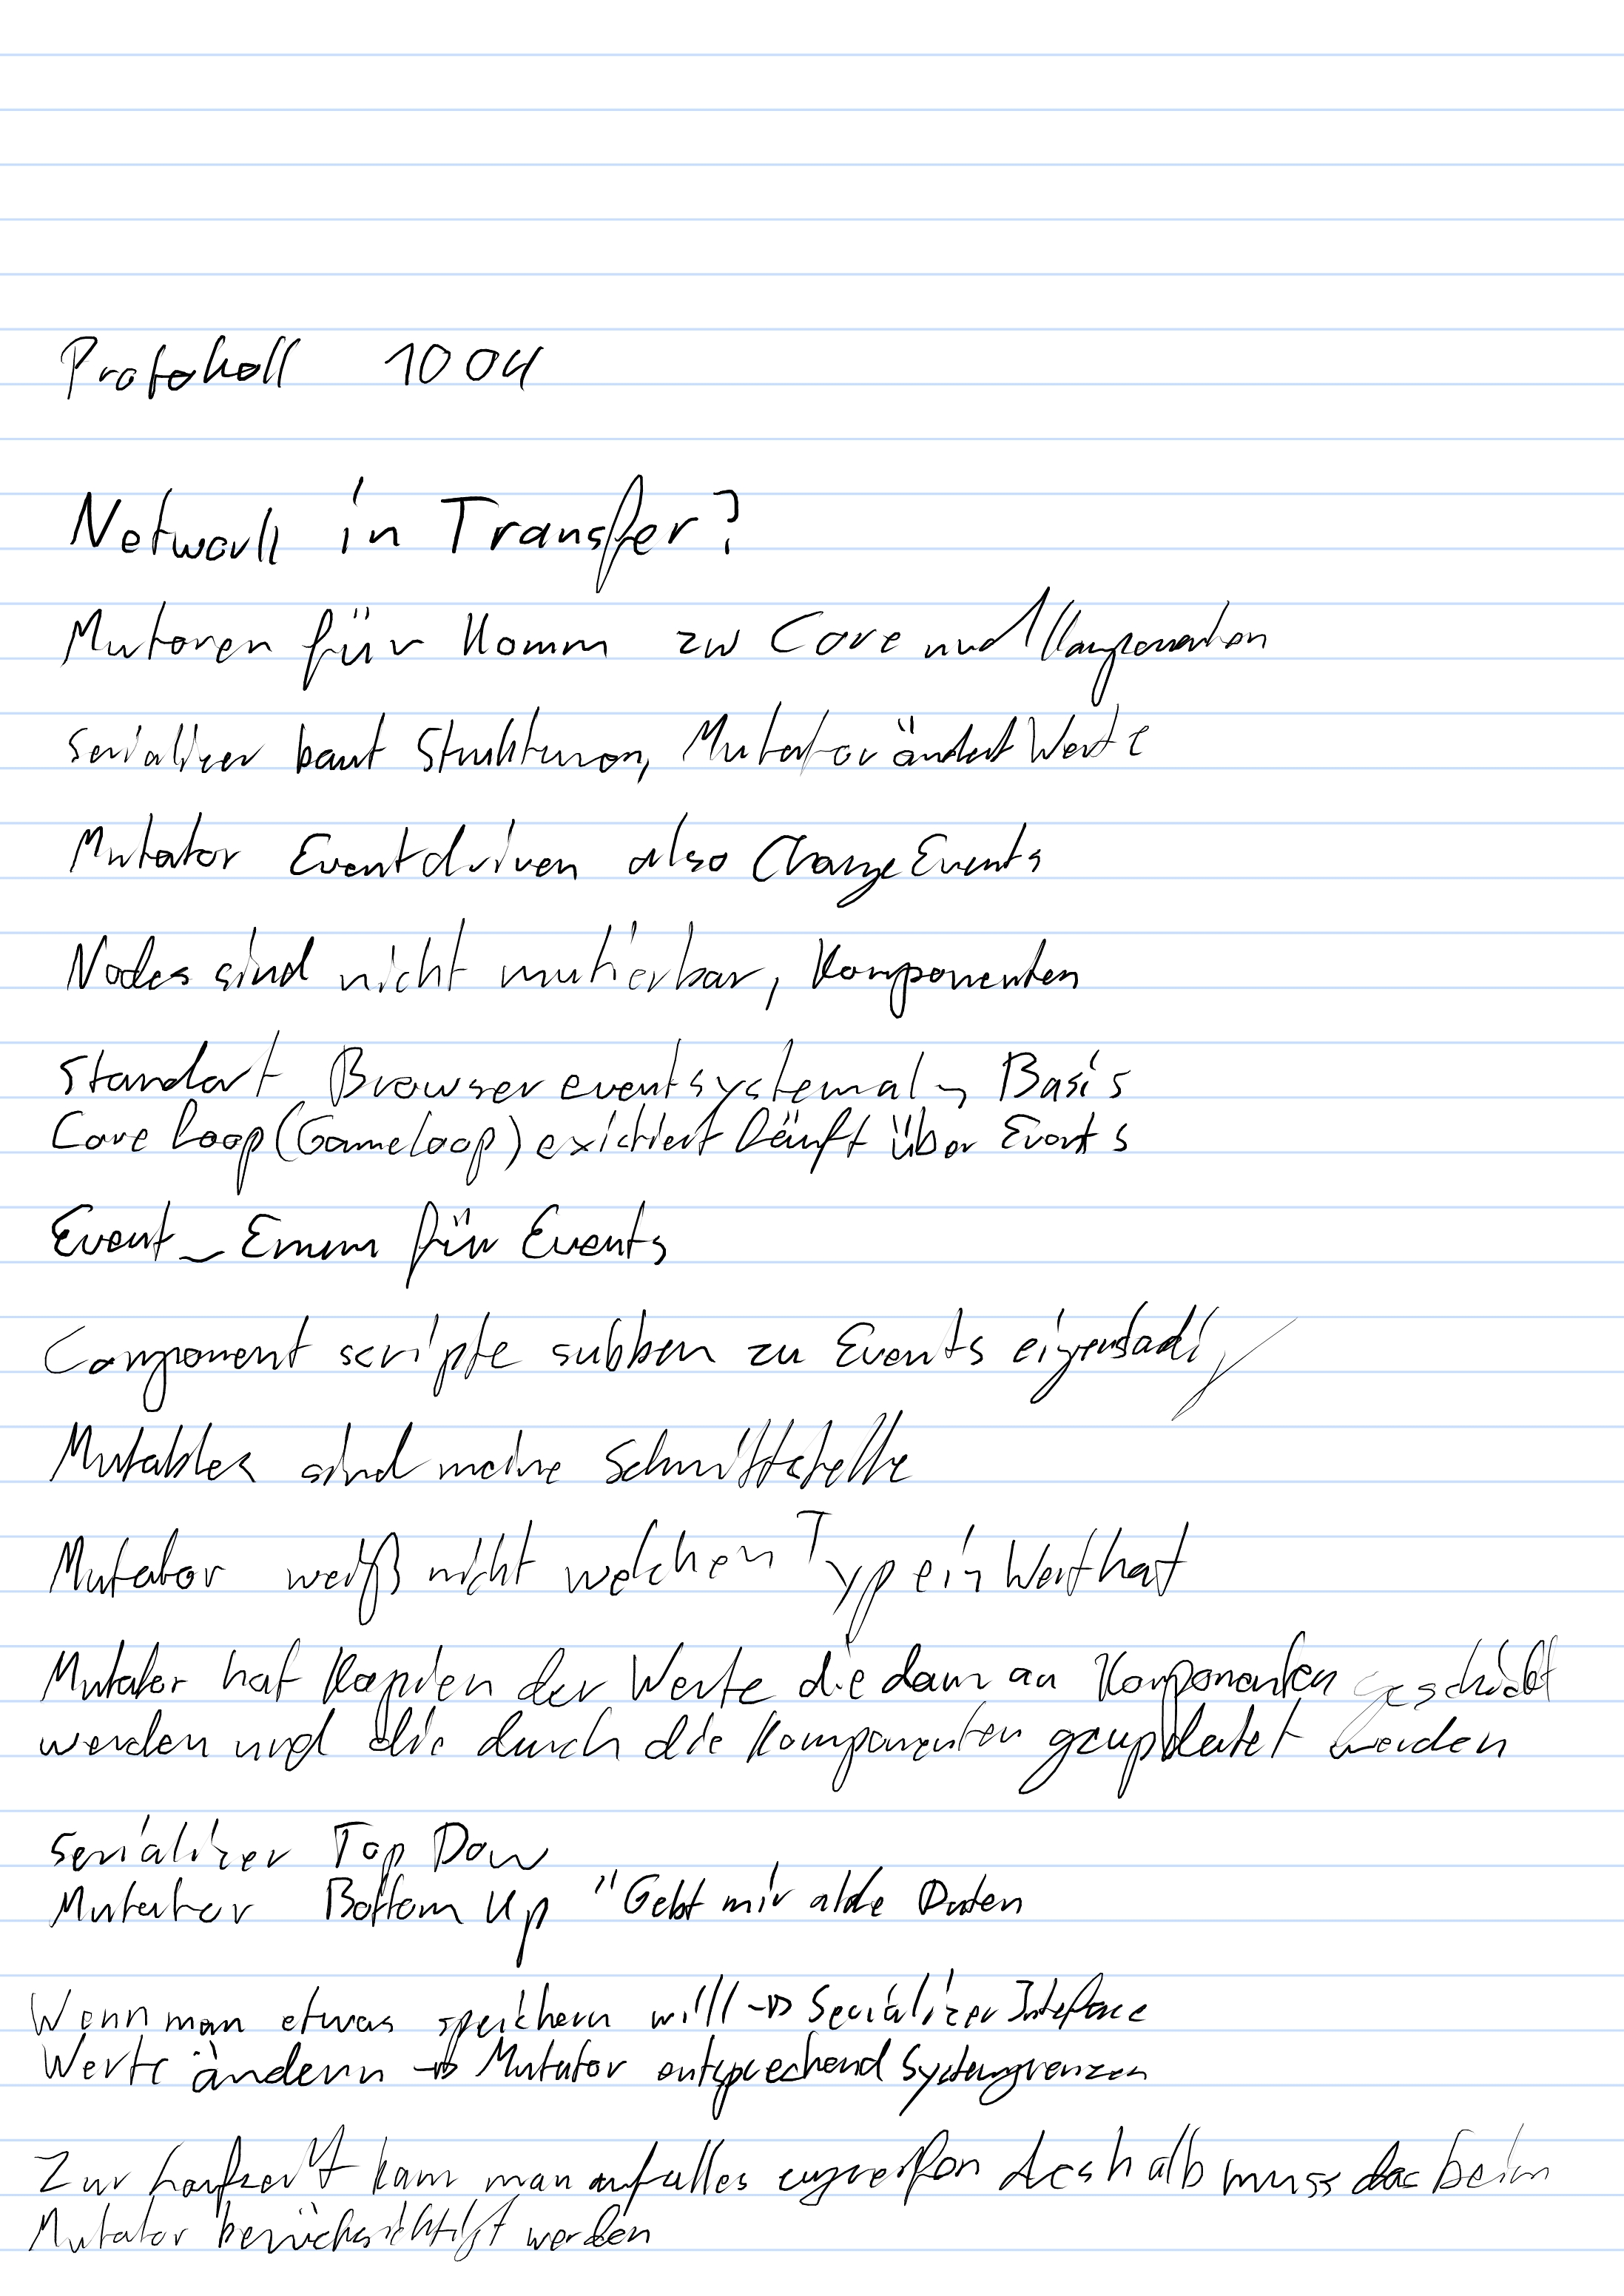 Protokoll 1004
Network in Transfer?
Mutoren für Komm zw Core und Komponenten
Serializer baut Strukturen, Mutator ändert Werte
Mutator Eventdriven also ChangeEvents
Nodes sind nicht mutierbar, Komponenten
Standart Browsereventsystem als Basis
Core loop (Gameloop) existiert läuft über Events
Event_Enum für Events
Component scripte subben zu Events eigenstädig
Mutables sind meine Schnittstelle
Mutator weiß nicht welchen Typ ein Wert hat
Mutator hat Kopien der Werte die dann an Komponenten geschickt
werden und die durch die Komponenten geupdatet werden
Serializer Top Dow
Mutator Bottom Up "Gebt mir alle Daten
Wenn man etwas speichern will -> Serializer Interface
Werte ändern -> Mutator entsprechend Systemgrenzen
Zur Laufzeit kann man auf alles zugreifen deshalb muss das beim
Mutator berücksichtigt werden